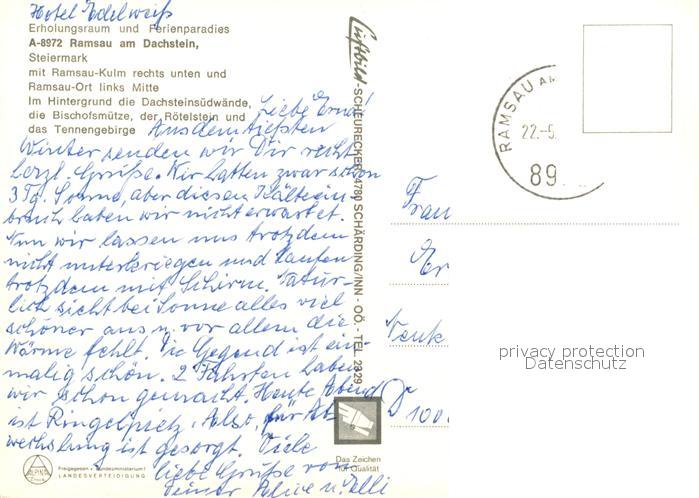 Hotel Edelweiß
Erholungsraum und Ferienparadies
A-8972 Ramsau am Dachstein,
Steiermark
mit Ramsau-Kulm rechts unten und
Ramsau-Ort links Mitte
Im Hintergrund die Dachsteinsüdwände,
die Bischofsmütze, der Rötelstein und
das Tennengebirge
Liebe Erna!
Aus dem tiefsten
Winter senden wir Dir recht
herzl. Grüße. Wir hatten zwar schon
3 Tg. Sonne, aber diesen Kälteein-
bruch haben wir nicht erwartet.
Nun wir lassen uns trotzdem
nicht unterkriegen und laufen
trotzdem mit Schirm. Natür-
lich sieht bei Sonne alles viel
schöner aus u. vor allem die
Wärme fehlt. Die Gegend ist ein-
malig schön. 2 Fahrten haben
wir schon gemacht. Heute Abend
ist Ringelpietz. Also, für Ab-
wechslung ist gesorgt. Viele
liebe Grüße von
Deiner Alice u. Willi
Freigegeben v. Bundesministerium f.
LANDESVERTEIDIGUNG
ALPINE
Luftbild-SCHEURECKER 4780 SCHÄRDING/INN - OÖ. - TEL. 2329
Das Zeichen
für Qualität
RAMSAU AM
22.-5.
89
Frau
Er
100
privacy protection
Datenschutz